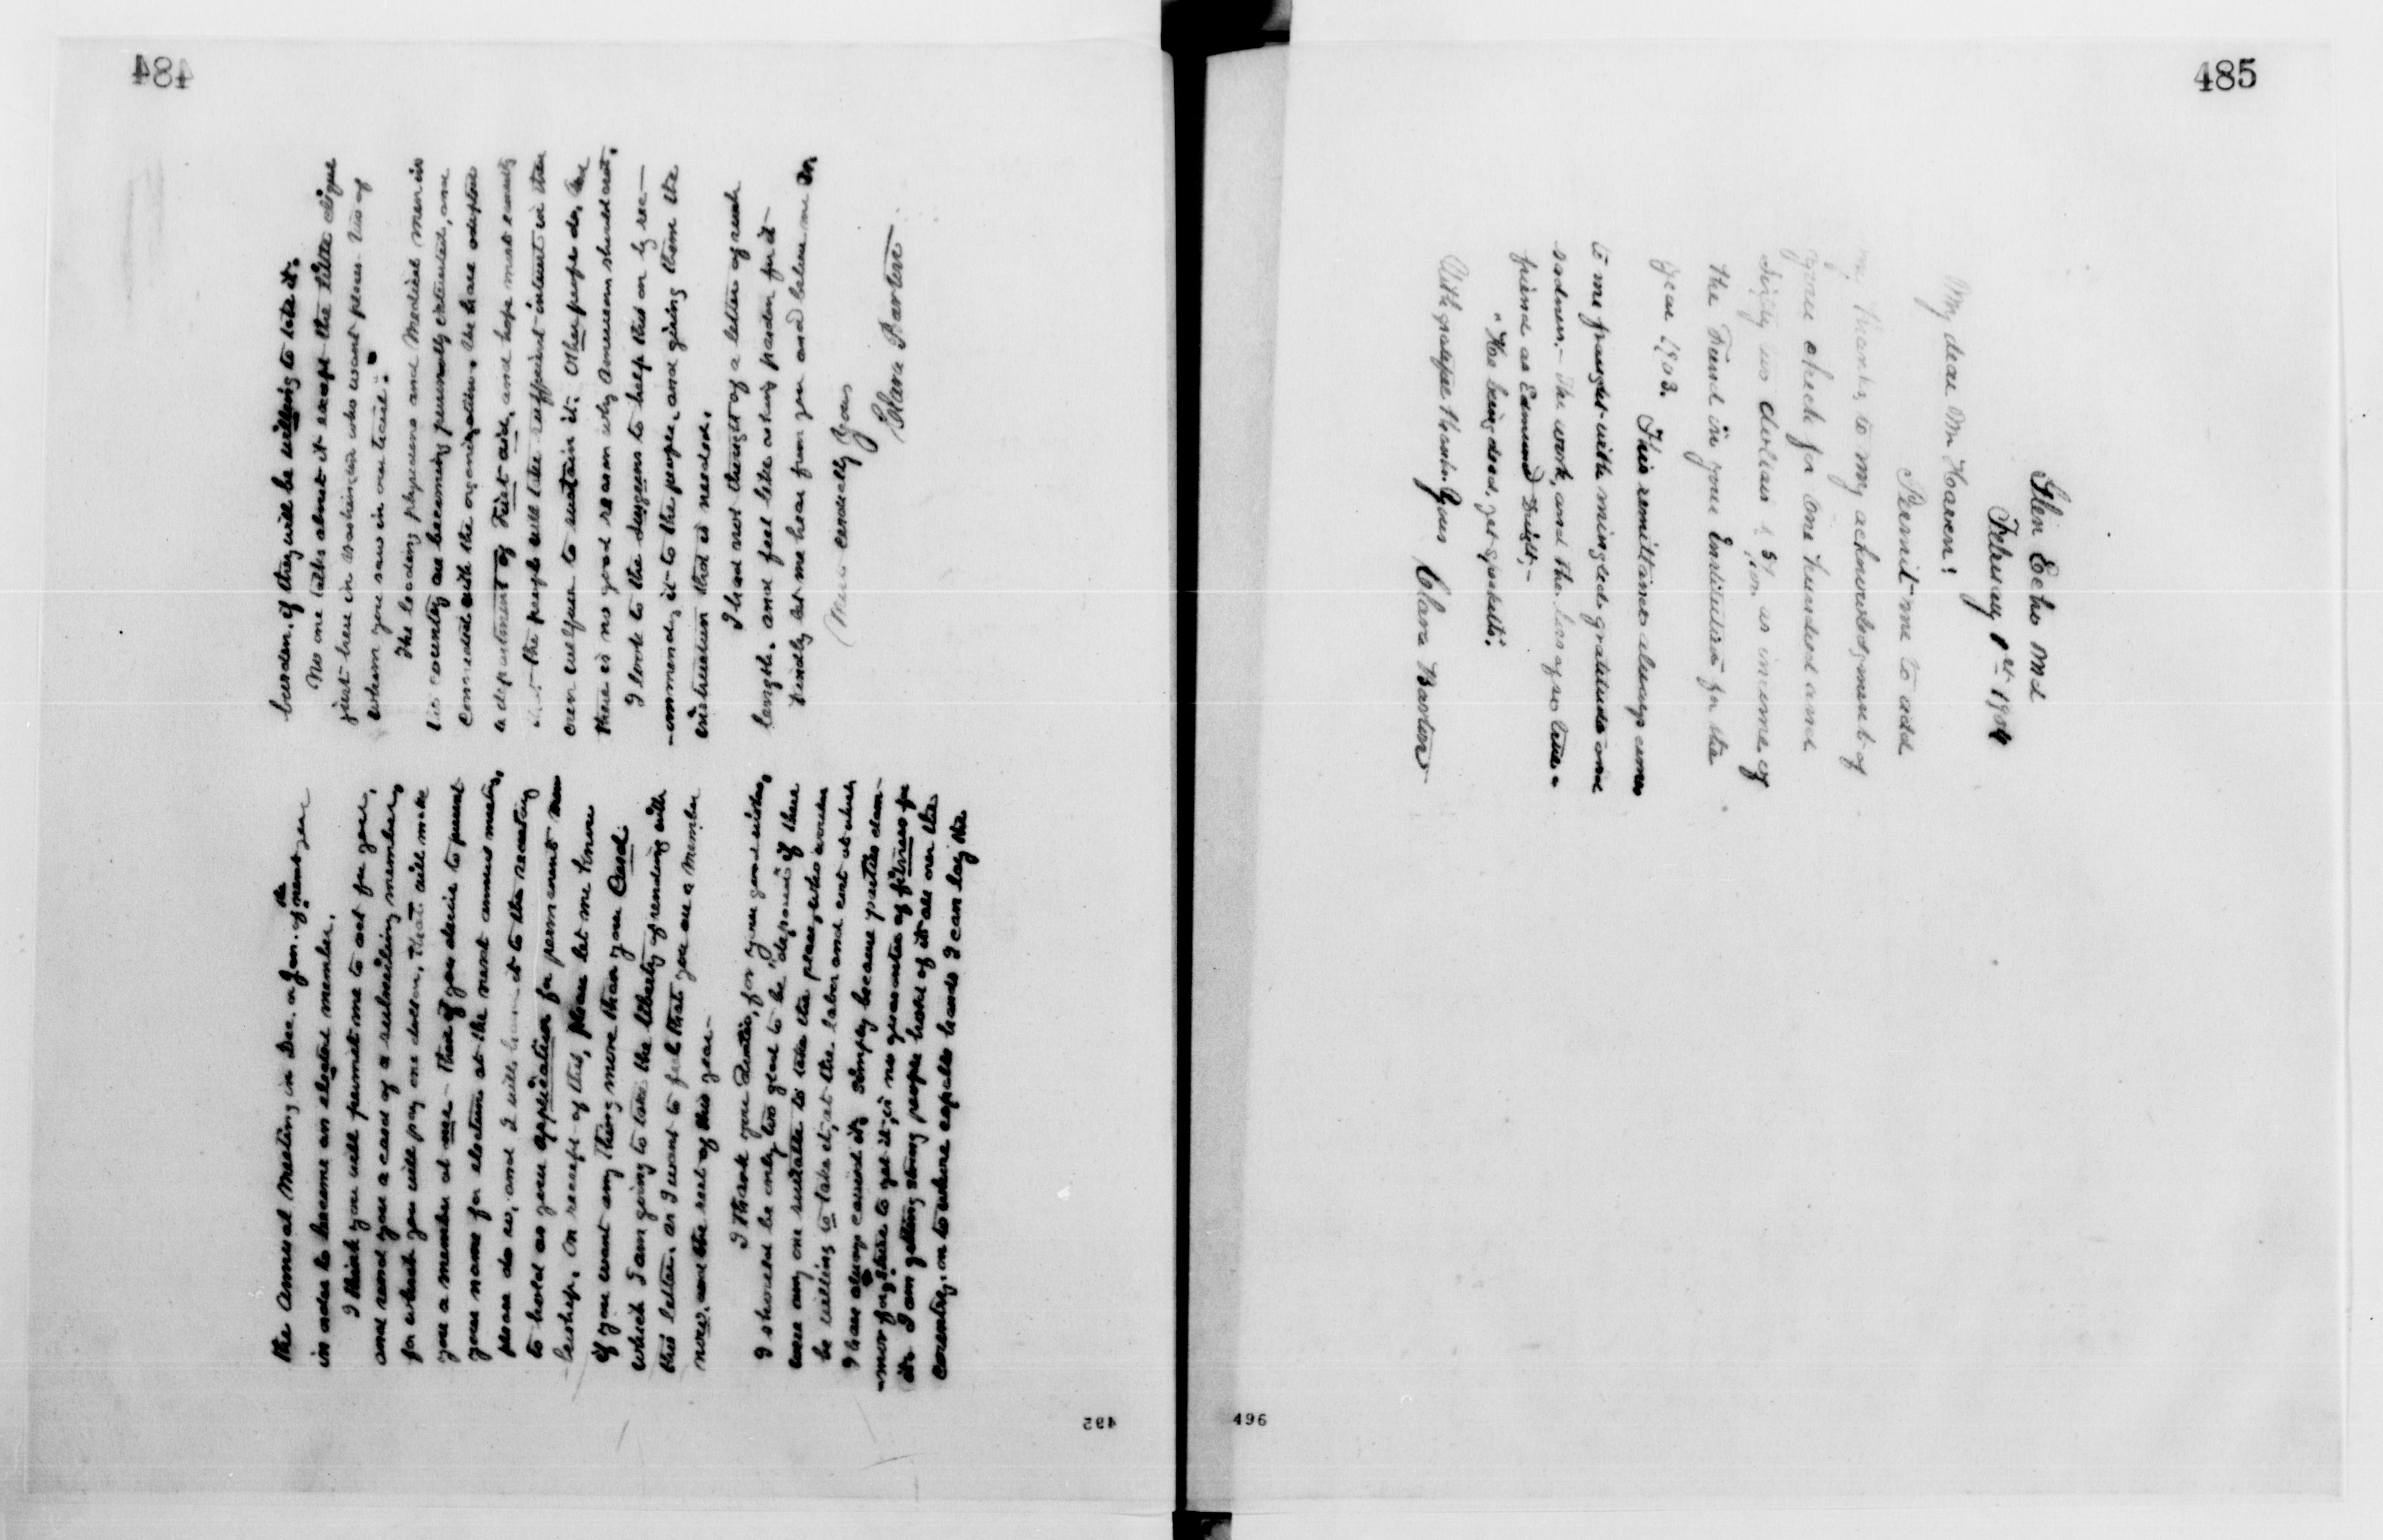 484
the Annual Meeting in Dec. or Jan. of the next year
in order to become an elected member.
I think you will permit me to act for you,
and send you a card of a subscribing member,
for which you will pay one dollar, that will make
you a member at once - then if you desire to present
your name for election at the next annual meeting,
please do so, and I will hand it to the secretary
to hold as your application for permanent mem
-bership. On receipt of this, please let me know
if you want any thing more than your Card.
which I am going to take the liberty of sending with
this letter, as I want to feel that you are a member
now, and the rest of this year -
I thank you Dentie, for your good wishes,
I should be only too glad to be "deposed" if there
were any one suitable to take the place, who would
be willing to take it, at the labor and cost at which
I have always carried it, simply because parties clam-
-mor for place to get it, is no guarantee of fitness for
it. I am getting strong people hold of it all over the
country, on to whose capable hands I can lay the
burden, if they will be willing to take it.
No one talks about it except the little clique
just here in Washington who want places. Two of
whom you saw in our trail.
The leading physicians and Medical men in
the country are becoming personally interested, and
connected with the organization. We have adopted
a department of First aid, and hope most earnestly
that the people will take sufficient interest in their
own welfare to sustain it. Other people do, and
there is no good reason why Americans should not.
I look to the Surgeons to help this on by rec-
-ommending it to the people, and giving them the
instruction that is needed.
I had not thought of a letter of such
length, and feel like asking pardon for it -
Kindly let me hear from you and believe me Dr.
Most cordially Yours
Clara Barton
492
485
Glen Echo Md
February 1st 1904
My dear Mr Haven:
Permit me to add
my thanks, to my acknowledgment of
your check for one hundred and
sixty two dollars & 51/100, as income of
the Fund in your Institution for the
year 1903.
This remittance always comes
to me fraught with mingled gratitude and
sadness. - The work, and the loss of so true a
friend as Edmund Dwight, -
"He being dead, yet speaketh".
With grateful thanks. Yours Clara Barton
496